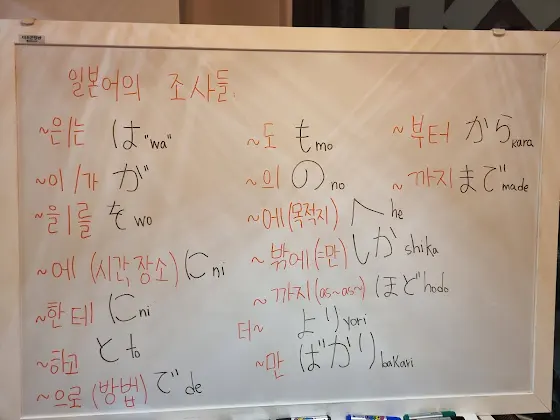 일본어의 조사들
~은/는 は "wa"
~이/가 が
~을/를 を wo
~에 (시간, 장소) に ni
~한테 に ni
~하고 と to
~으로 (방법) で de
~도 も mo
~의 の no
~에 (목적지) へ he
~밖에 (=만) しか shika
~까지 (as~as~) ほど hodo
터~ より yori
~만 ばかり bakari
~부터 から kara
~까지 まで made